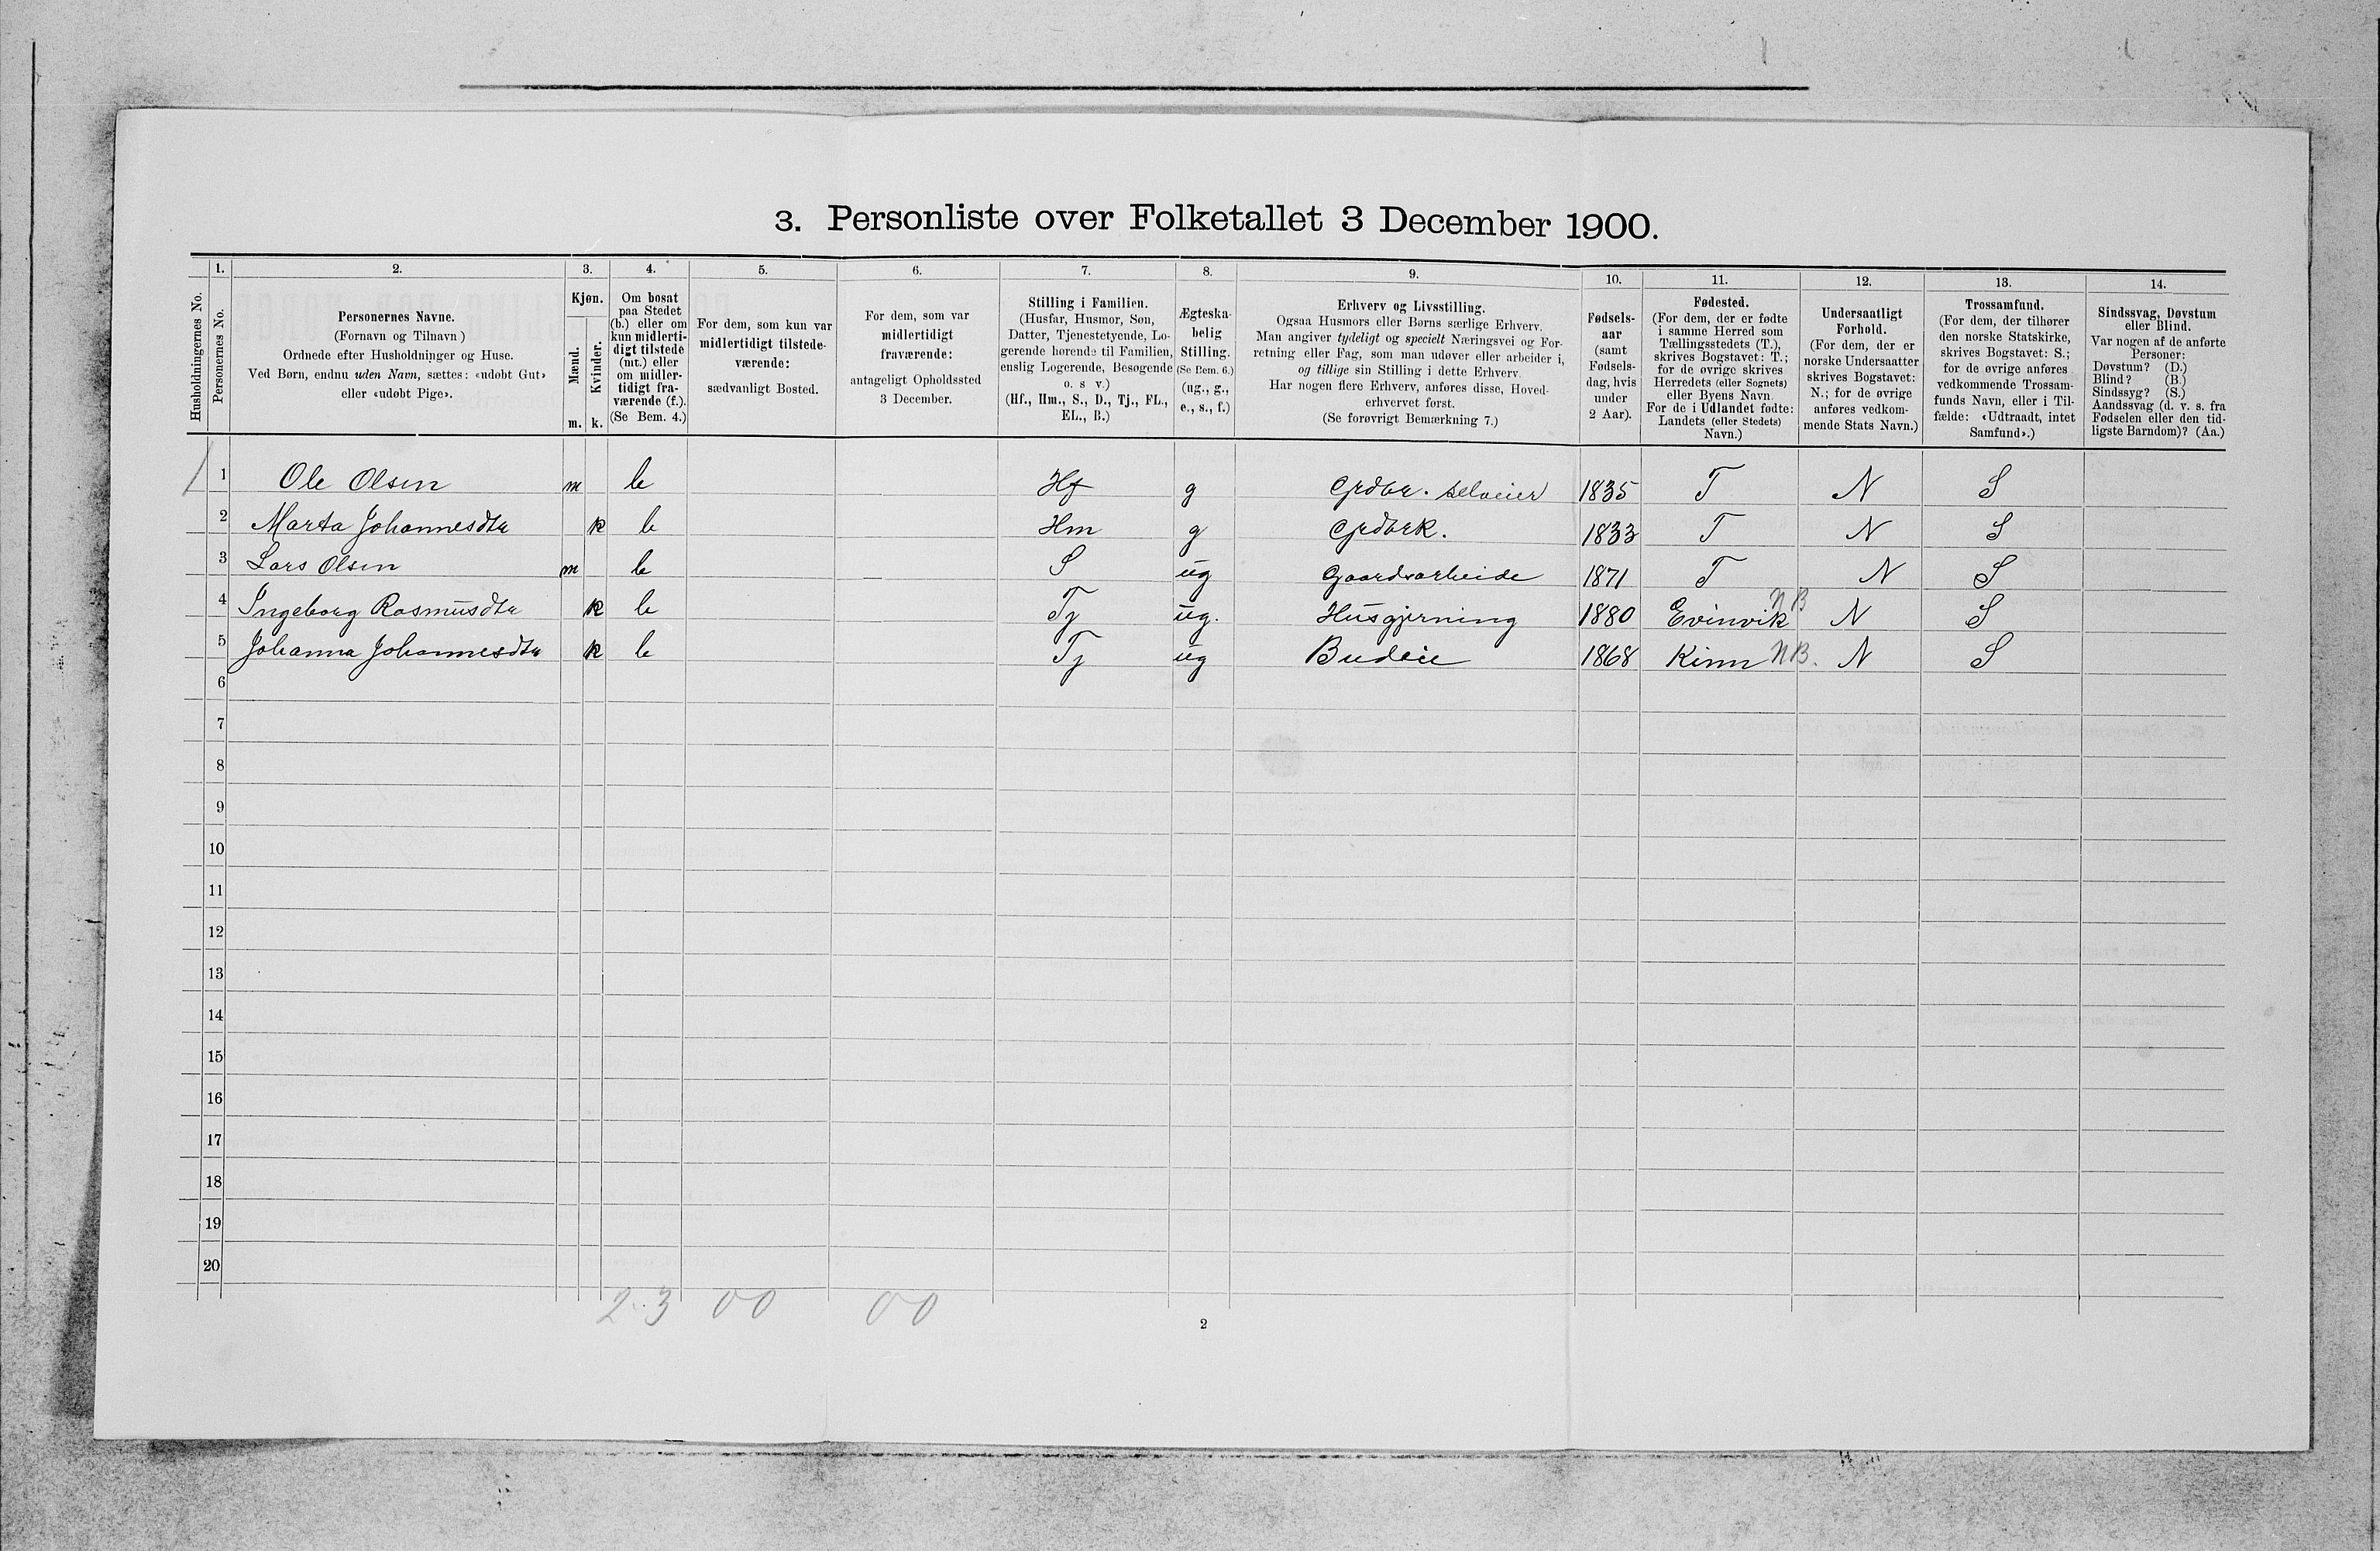 3. Personliste over Folketallet 3 December 1900.
Husholdningernes No.
1. Personernes No.
2. Personernes Navne.
(Fornavn og Tilnavn)
Ordnede efter Husholdninger og Huse.
Ved Børn, endnu uden Navn, sættes: «udøbt Gut»
eller «udøbt Pige».
3. Kjøn.
Mænd. m.
Kvinder. k.
4. Om bosat
paa Stedet
(b.) eller om
kun midlerti-
digt tilstede
(mt.) eller
om midler-
tidigt fra-
værende (f.).
(Se Bem. 4.)
5. For dem, som kun var
midlertidigt tilstede-
værende:
sædvanligt Bosted.
6. For dem, som var
midlertidigt
fraværende:
antageligt Opholdssted
3 December.
7. Stilling i Familien.
(Husfar, Husmor, Søn,
Datter, Tjenestetyende, Lo-
gerende hørende til Familien,
enslig Logerende, Besøgende
o. s v.)
(Hf., Hm., S., D., Tj., FL.,
EL., B.)
8. Ægteska-
belig
Stilling.
(Se Bem. 6.)
(ug., g.,
e., s., f.)
9. Erhverv og Livsstilling.
Ogsaa Husmors eller Børns særlige Erhverv.
Man angiver tydeligt og specielt Næringsvei og For-
retning eller Fag, som man udøver eller arbeider i,
og tillige sin Stilling i dette Erhverv.
Har nogen flere Erhverv, anføres disse, Hoved-
erhvervet først.
(Se forøvrigt Bemærkning 7.)
10. Fødsels-
aar
(samt
Fødsels-
dag, hvis
under
2 Aar).
11. Fødested.
(For dem, der er fødte
i samme Herred som
Tællingsstedets (T.),
skrives Bogstavet: T.;
for de øvrige skrives
Herredets (eller Sognets)
eller Byens Navn.
For de i Udlandet fødte:
Landets (eller Stedets)
Navn.)
12. Undersaatligt
Forhold.
(For dem, der er
norske Undersaatter
skrives Bogstavet:
N.; for de øvrige
anføres vedkom-
mende Stats Navn.)
13. Trossamfund.
(For dem, der tilhører
den norske Statskirke,
skrives Bogstavet: S.;
for de øvrige anføres
vedkommende Trossam-
funds Navn, eller i Til-
fælde: «Udtraadt, intet
Samfund».)
14. Sindssvag, Døvstum
eller Blind.
Var nogen af de anførte
Personer:
Døvstum? (D.)
Blind? (B.)
Sindssyg? (S.)
Aandssvag (d. v. s. fra
Fødselen eller den tid-
ligste Barndom)? (Aa.)
1 1 Ole Olsen m b Hf g Grdbr. selveier 1835 T N S
2 Marta Johannesdtr k b Hm g Grdbrk. 1833 T N S
3 Lars Olsen m b S ug Gaardsarbeide 1871 T N S
4 Ingeborg Rasmusdtr k b Tj ug. Husgjerning 1880 Evinvik NB N S
5 Johanna Johannesdtr k b Tj ug Budeie 1868 Kinn NB. N S
6
7
8
9
10
11
12
13
14
15
16
17
18
19
20
2. 3 00 00
2